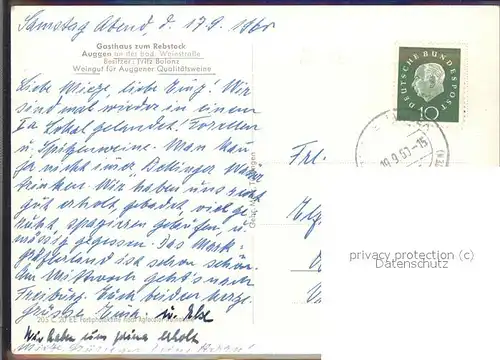 Samstag Abend, d. 17.9. 1960
Gasthaus zum Rebstock
Auggen an der bad. Weinstraße
Besitzer: Fritz Bolanz
Weingut für Auggener Qualitätsweine
Liebe Mieze, liebe Inz! Wir
sind mal wieder in einem
Ia Lokal gelandet! Forellen
u. Spitzenweine. Man kann
ja nicht immer Bellinger Wasser
trinken. Wir haben uns recht
gut erholt, gebadet, viel ge-
ruht, spazieren gelaufen, u.
mässig gegessen. Das Mark-
gräflerland ist sehr schön.
Am Mittwoch geht's nach
Freiburg. Euch beiden herz.
Grüsse Euch. u. Else
Wir haben uns prima erholt
DEUTSCHE BUNDESPOST
10
19.9.60-15
Frl.
privacy protection (c)
Datenschutz